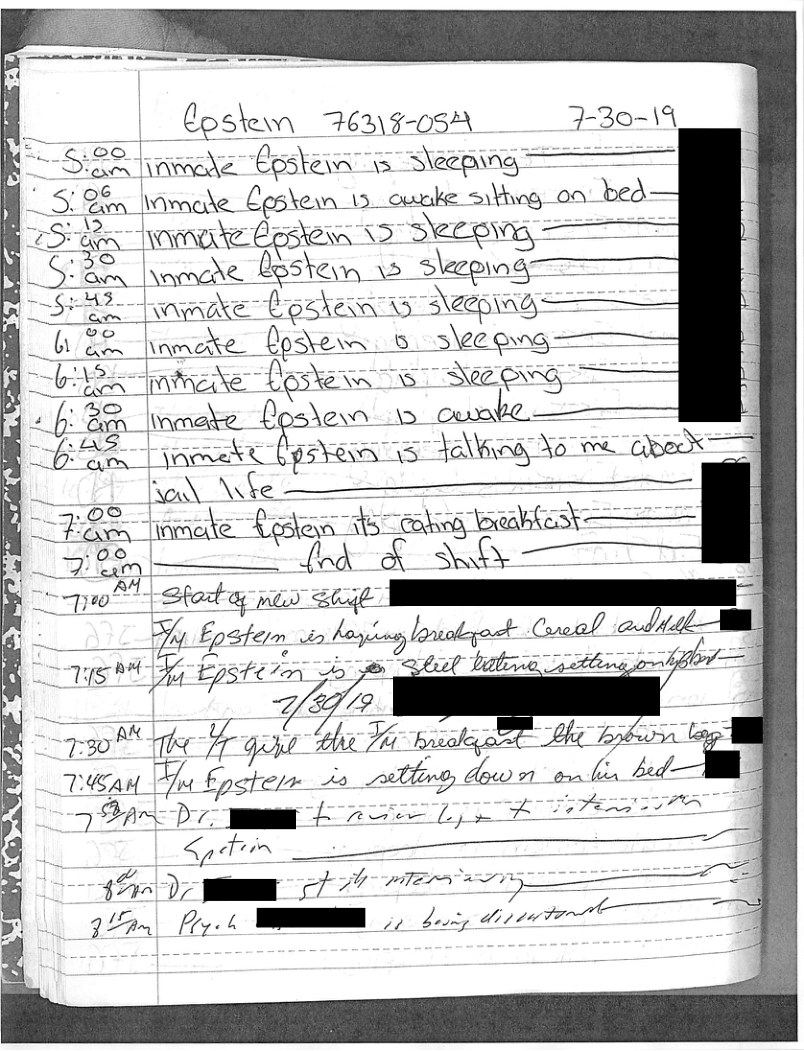 Epstein 76318-054 7-30-19
5:00 am inmate Epstein is sleeping
5:06 am inmate Epstein is awake sitting on bed
5:15 am inmate Epstein is sleeping
5:30 am inmate Epstein is sleeping
5:45 am inmate Epstein is sleeping
6:00 am inmate Epstein is sleeping
6:15 am inmate Epstein is sleeping
6:30 am inmate Epstein is awake
6:45 am inmate Epstein is talking to me about
jail life
7:00 am inmate Epstein its eating breakfast
7:00 am End of shift
7:00 AM Start of new shift
I/M Epstein is having breakfast Cereal and Milk
7:15 AM I/M Epstein is steel eating setting on
7/30/19
7:30 AM The give the I/M breakfast the brown bag
7:45 AM I/M Epstein is setting down on his bed
AM Dr. to review log +
Epstein
AM Dr
8 15 AM Psych is being